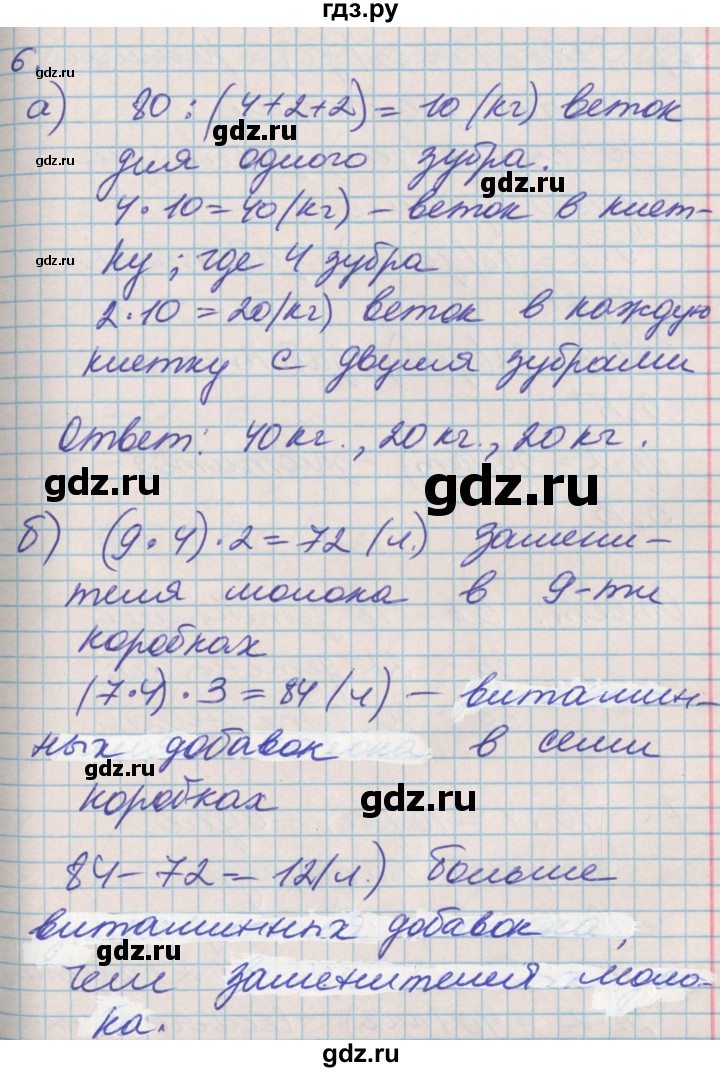 гдз.ру
6.
а) 80 : (4+2+2) = 10 (кг) веток
gdz.ru
gdz.ru
для одного зубра.
gdz.ru
4 · 10 = 40 (кг) – веток в клет-
gdz.ru
ку; где 4 зубра
2 · 10 = 20 (кг) веток в каждую
клетку с двумя зубрами
Ответ: 40 кг., 20 кг., 20 кг.
gdz.ru
gdz.ru
б) (9 · 4) · 2 = 72 (л.) замени-
теля молока в 9-ти
коробках
(7·4) · 3 = 84 (л) – витамин-
ных добавок в семи
gdz.ru
коробках
gdz.ru
84 – 72 = 12 (л.) больше
витаминных добавок,
gdz.ru
чем заменителей моло-
ка.
gdz.ru
gdz.ru